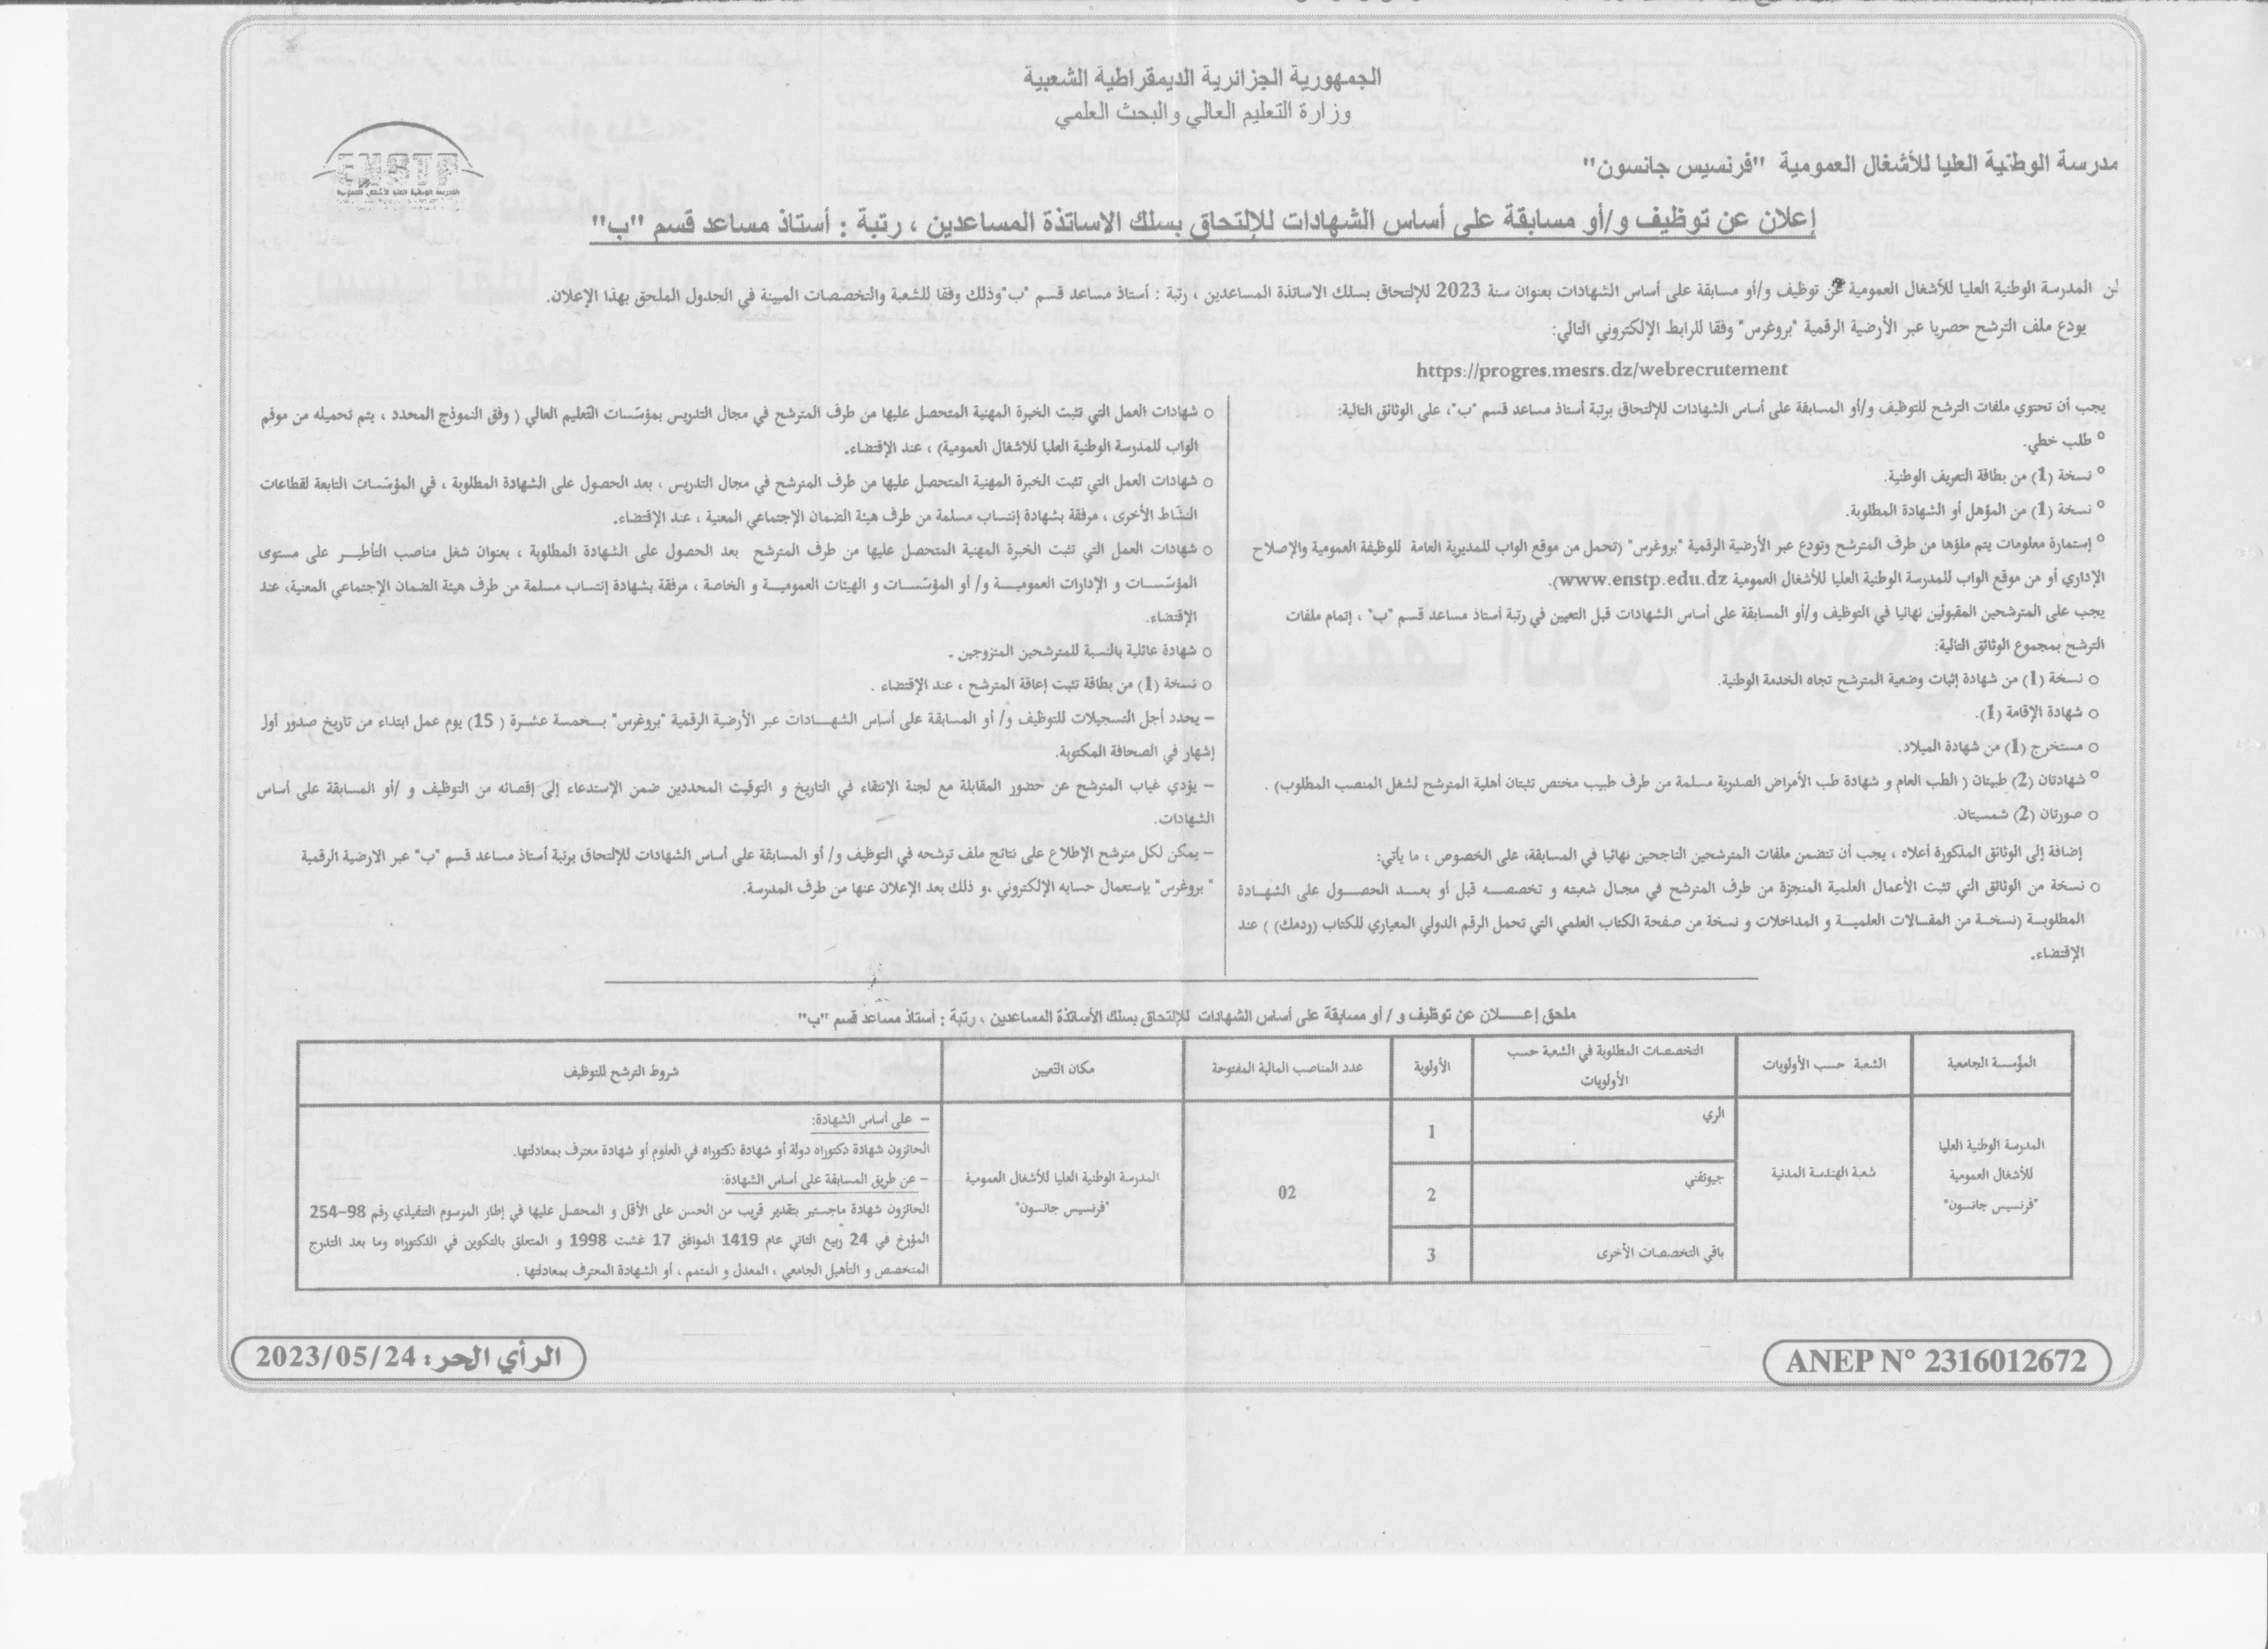 الجمهورية الجزائرية الديمقراطية الشعبية
وزارة التعليم العالي والبحث العلمي
ENSTP
المدرسة الوطنية العليا للأشغال العمومية
مدرسة الوطنية العليا للأشغال العمومية "فرنسيس جانسون"
إعلان عن توظيف و/أو مسابقة على أساس الشهادات للإلتحاق بسلك الاساتذة المساعدين ، رتبة : أستاذ مساعد قسم "ب"
لن المدرسة الوطنية العليا للأشغال العمومية عن توظيف و/أو مسابقة على أساس الشهادات بعنوان سنة 2023 للإلتحاق بسلك الاساتذة المساعدين ، رتبة : أستاذ مساعد قسم "ب"وذلك وفقا للشعبة والتخصصات المبينة في الجدول الملحق بهذا الإعلان.
يودع ملف الترشح حصريا عبر الأرضية الرقمية "بروغرس" وفقا للرابط الإلكتروني التالي:
https://progres.mesrs.dz/webrecrutement
يجب أن تحتوي ملفات الترشح للتوظيف و/أو المسابقة على أساس الشهادات للإلتحاق برتبة أستاذ مساعد قسم "ب"، على الوثائق التالية:
° طلب خطي.
° نسخة (1) من بطاقة التعريف الوطنية.
° نسخة (1) من المؤهل أو الشهادة المطلوبة.
° إستمارة معلومات يتم ملؤها من طرف المترشح وتودع عبر الأرضية الرقمية "بروغرس" (تحمل من موقع الواب للمديرية العامة للوظيفة العمومية والإصلاح
الإداري أو من موقع الواب للمدرسة الوطنية العليا للأشغال العمومية www.enstp.edu.dz).
يجب على المترشحين المقبولين نهائيا في التوظيف و/أو المسابقة على أساس الشهادات قبل التعيين في رتبة أستاذ مساعد قسم "ب" ، إتمام ملفات
الترشح بمجموع الوثائق التالية:
○ نسخة (1) من شهادة إثبات وضعية المترشح تجاه الخدمة الوطنية.
○ شهادة الإقامة (1).
○ مستخرج (1) من شهادة الميلاد.
° شهادتان (2) طبيتان ( الطب العام و شهادة طب الأمراض الصدرية مسلمة من طرف طبيب مختص تثبتان أهلية المترشح لشغل المنصب المطلوب) .
○ صورتان (2) شمسيتان.
إضافة إلى الوثائق المذكورة أعلاه ، يجب أن تتضمن ملفات المترشحين الناجحين نهائيا في المسابقة، على الخصوص ، ما يأتي:
○ نسخة من الوثائق التي تثبت الأعمال العلمية المنجزة من طرف المترشح في مجال شعبته و تخصصه قبل أو بعد الحصول على الشهادة
المطلوبة (نسخة من المقالات العلمية و المداخلات و نسخة من صفحة الكتاب العلمي التي تحمل الرقم الدولي المعياري للكتاب (ردمك) ) عند
الإقتضاء.
○ شهادات العمل التي تثبت الخبرة المهنية المتحصل عليها من طرف المترشح في مجال التدريس بمؤسّسات التّعليم العالي ( وفق النموذج المحدد ، يتم تحميله من موقم
الواب للمدرسة الوطنية العليا للاشغال العمومية) ، عند الإقتضاء.
○ شهادات العمل التي تثبت الخبرة المهنية المتحصل عليها من طرف المترشح في مجال التدريس ، بعد الحصول على الشهادة المطلوبة ، في المؤسّسات التابعة لقطاعات
النشّاط الأخرى ، مرفقة بشهادة إنتساب مسلمة من طرف هيئة الضمان الإجتماعي المعنية ، عند الإقتضاء.
○ شهادات العمل التي تثبت الخبرة المهنية المتحصل عليها من طرف المترشح بعد الحصول على الشهادة المطلوبة ، بعنوان شغل مناصب التأطير على مستوى
المؤسّسات و الإدارات العمومية و/ أو المؤسّسات و الهيئات العمومية و الخاصة ، مرفقة بشهادة إنتساب مسلمة من طرف هيئة الضمان الإجتماعي المعنية، عند
الإقتضاء.
○ شهادة عائلية بالنسبة للمترشحين المتزوجين .
○ نسخة (1) من بطاقة تثبت إعاقة المترشح ، عند الإقتضاء .
– يحدد أجل التسجيلات للتوظيف و/ أو المسابقة على أساس الشهادات عبر الأرضية الرقمية "بروغرس" بخمسة عشرة ( 15) يوم عمل ابتداء من تاريخ صدور أول
إشهار في الصحافة المكتوبة.
– يؤدي غياب المترشح عن حضور المقابلة مع لجنة الإنتقاء في التاريخ و التوقيت المحددين ضمن الإستدعاء إلى إقصائه من التوظيف و /أو المسابقة على أساس
الشهادات.
– يمكن لكل مترشح الإطلاع على نتائج ملف ترشحه في التوظيف و/ أو المسابقة على أساس الشهادات للإلتحاق برتبة أستاذ مساعد قسم "ب" عبر الارضية الرقمية
" بروغرس" بإستعمال حسابه الإلكتروني ،و ذلك بعد الإعلان عنها من طرف المدرسة.
ملحق إعلان عن توظيف و / أو مسابقة على أساس الشهادات للإلتحاق بسلك الأساتذة المساعدين ، رتبة : أستاذ مساعد قسم "ب"
المؤسّسة الجامعية
الشعبة حسب الأولويات
التخصصات المطلوبة في الشعبة حسب
الأولويات
الأولوية
عدد المناصب المالية المفتوحة
مكان التعيين
شروط الترشح للتوظيف
المدرسة الوطنية العليا
للأشغال العمومية
"فرنسيس جانسون"
شعبة الهندسة المدنية
الري
1
جيوتقني
2
باقي التخصصات الأخرى
3
02
المدرسة الوطنية العليا للأشغال العمومية
"فرنسيس جانسون"
– على أساس الشهادة:
الحائزون شهادة دكتوراه دولة أو شهادة دكتوراه في العلوم أو شهادة معترف بمعادلتها.
– عن طريق المسابقة على أساس الشهادة:
الحائزون شهادة ماجستير بتقدير قريب من الحسن على الأقل و المحصل عليها في إطار المرسوم التنفيذي رقم 98–254
المؤرخ في 24 ربيع الثاني عام 1419 الموافق 17 غشت 1998 و المتعلق بالتكوين في الدكتوراه وما بعد التدرج
المتخصص و التأهيل الجامعي ، المعدل و المتمم ، أو الشهادة المعترف بمعادلتها .
ANEP N° 2316012672
الرأي الحر: 2023/05/24